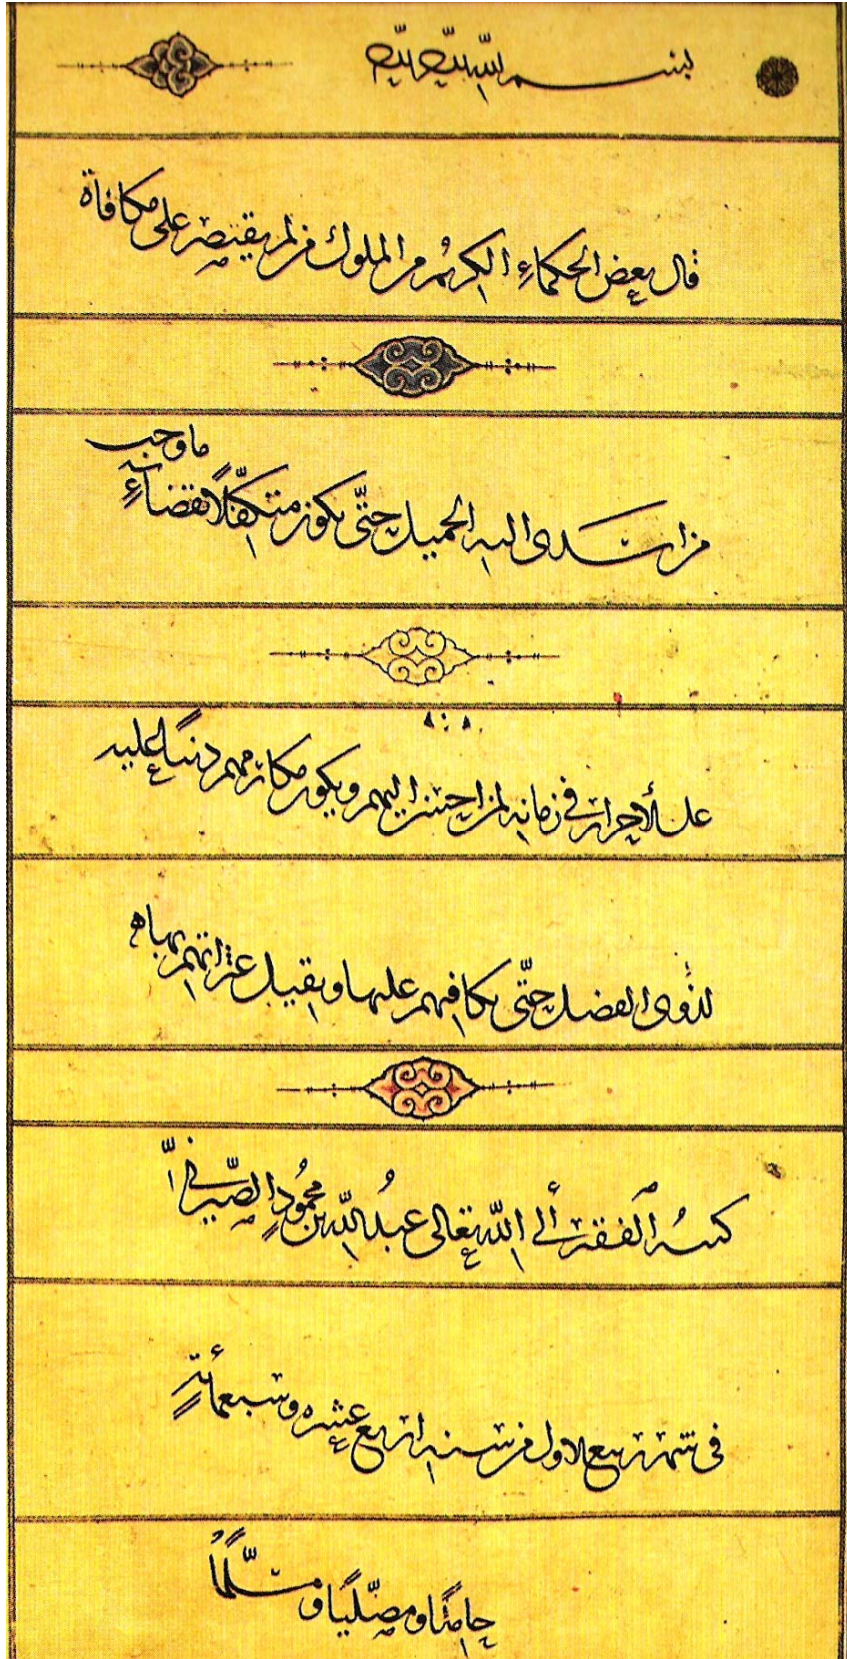 بسم الله
قال بعض الحكماءِ الكريمُ من الملوك من لم يقتصر على مكافاة
من اسدى اليه الجميل حتّى يكون متكفّلًا بقضاءِ ما وجب
على الأحرار في زمانه لمن احسن اليهم ويكون مكان مهم دينًا عليه
لذوى الفضل حتّى يكافيهم عليها ويقيل عثراتهم بها
كتبهُ الفقير ألى اللّه تعالى عبدُ اللّه بن محمُودٍ الصّيرفيّ
فى شهر ربيع الاول من سنه اربع عشره وسبعمأئةٍ
حامدًا ومصلّيًا ومسلّمًا